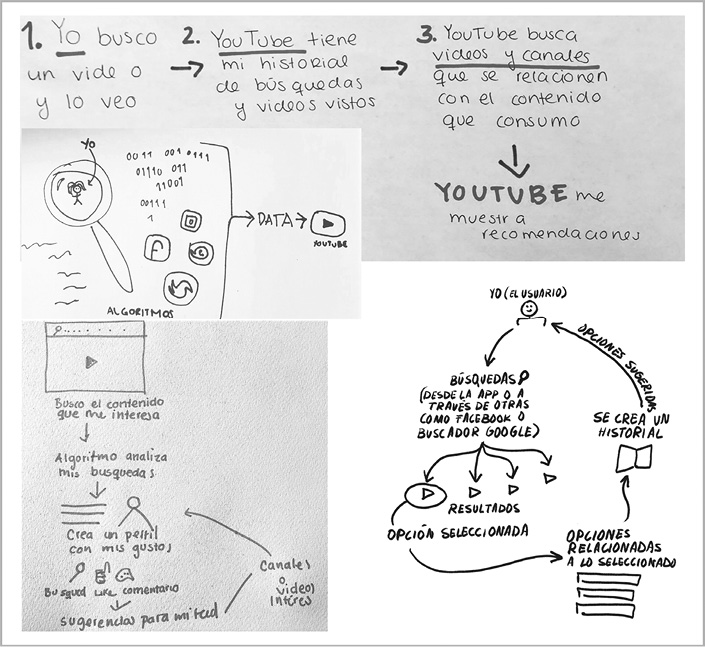 1. Yo busco
un video
y lo veo
2. YouTube tiene
mi historial
de búsquedas
y videos vistos
3. YouTube busca
videos y canales
que se relacionen
con el contenido
que consumo
YOUTUBE me
muestra
recomendaciones
YO
0011 001 0111
01110 011
11001
00111
1
DATA
YOUTUBE
ALGORITMOS
Busco el contenido
que me interesa
Algoritmo analiza
mis busquedas
Crea un perfil
con mis gustos
Busqued Like comentario
sugerencias para mi red
Canales
o
videos
Interes
YO (EL USUARIO)
BÚSQUEDAS
(DESDE LA APP O A
TRAVÉS DE OTRAS
COMO FACEBOOK O
BUSCADOR GOOGLE)
RESULTADOS
OPCIÓN SELECCIONADA
OPCIONES
RELACIONADAS
A LO SELECCIONADO
SE CREA UN
HISTORIAL
OPCIONES SUGERIDAS